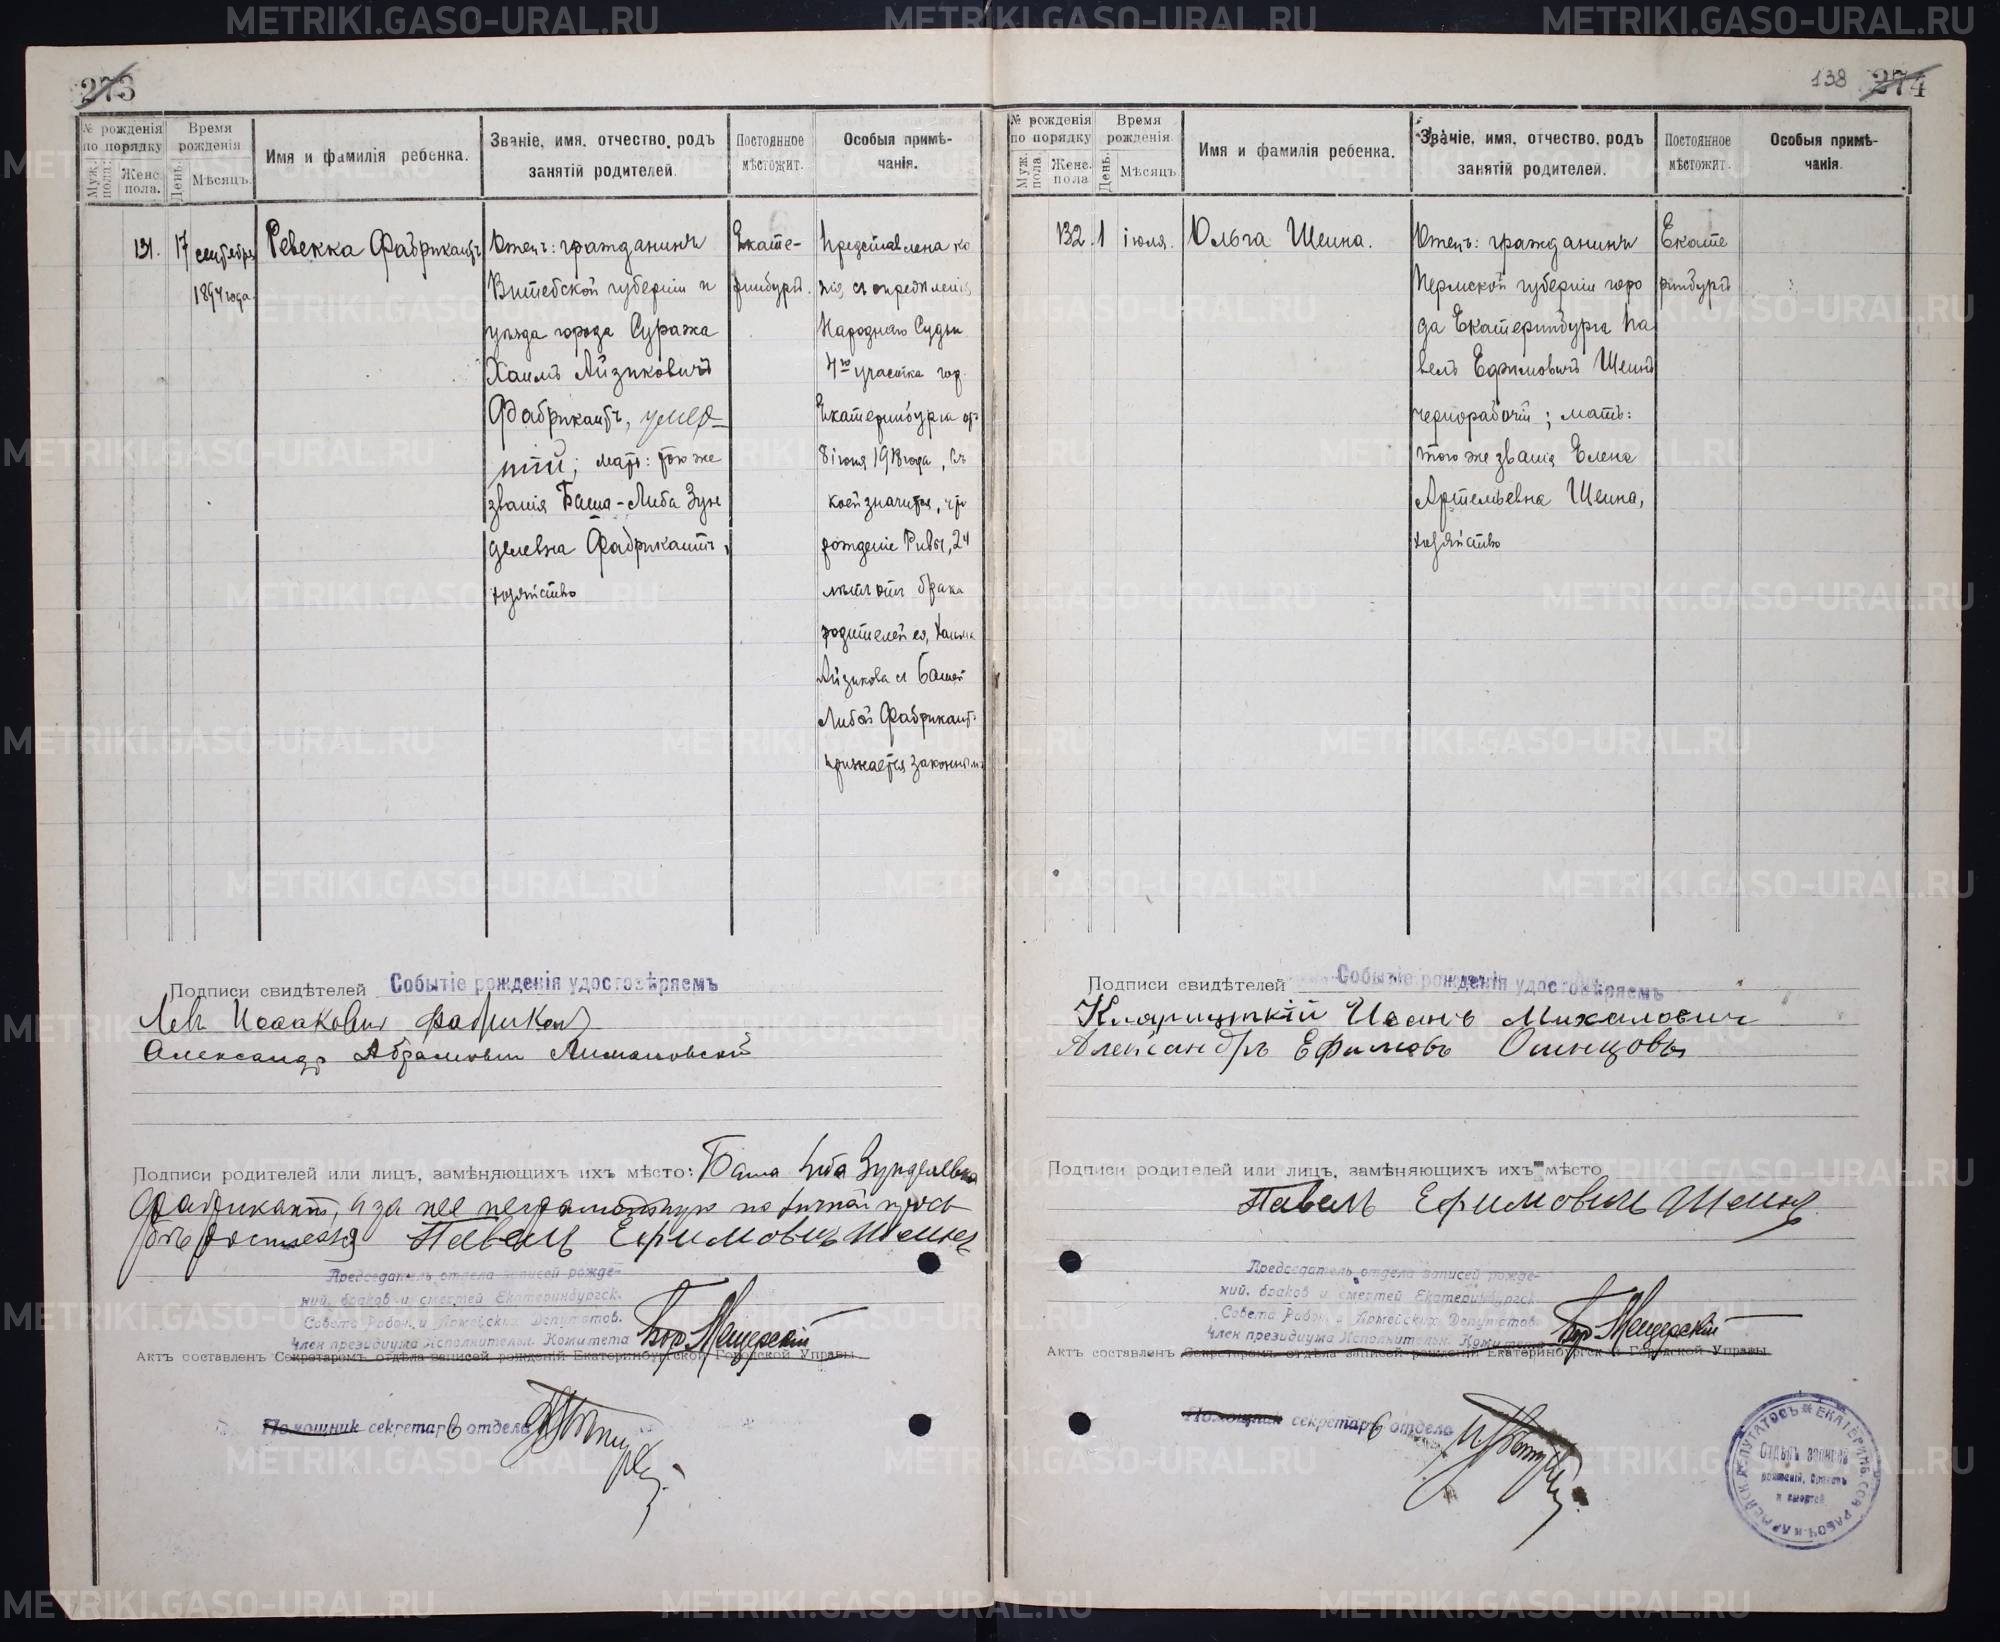 273
№ рожденія по порядку
Муж. пола.
Женс. пола.
Время рожденія
День.
Мѣсяцъ.
Имя и фамилія ребенка.
Званіе, имя, отчество, родъ занятій родителей.
Постоянное мѣстожит.
Особыя примѣчанія.
131.
17
сентября
1894 года.
Ревекка Фабрикантъ
Отецъ: гражданинъ
Витебской губерніи и
уѣзда города Суража
Хаимъ Айзиковичъ
Фабрикантъ, умер-
шій; мать: того же
званія Баша-Либа Зун
делевна Фабрикантъ,
хозяйство
Екате-
ринбургъ.
Представлена ко
пія съ опредѣленія
Народнаго Судьи
4го участка гор.
Екатеринбурга отъ
8 іюня 1918 года, въ
коей значится, что
рожденіе Ривы, 24
лѣтъ отъ брака
родителей ея, Хаима
Айзикова и Башей
Либой Фабрикантъ
признается законнымъ
Подписи свидѣтелей Событіе рожденія удостовѣряемъ
Левъ Исаакович Фабрикант
Александр Абрамович Лимановский
Подписи родителей или лицъ, замѣняющихъ ихъ мѣсто: Баша Либа Зунделевна
Фабрикантъ, а за нее неграмотную по личной прось
Павелъ Ефимовичъ Шеинъ
Председатель отдела записей рожде-
ний, браков и смертей Екатеринбургск.
Совета Рабоч. и Армейских Депутатов.
Член президиума Исполнительн. Комитета
Актъ составленъ Секретаремъ отдѣла записей рожденій Екатеринбургской Городской Управы
Помощник секретарь отдела
138 274
№ рожденія по порядку
Муж. пола.
Женс. пола
Время рожденія.
День.
Мѣсяцъ.
Имя и фамилія ребенка.
Званіе, имя, отчество, родъ занятій родителей.
Постоянное мѣстожит.
Особыя примѣчанія.
132.
1
іюля.
Ольга Шеина.
Отецъ: гражданинъ
Пермской губерніи горо
да Екатеринбурга Па
велъ Ефимовичъ Шеинъ
чернорабочій; мать:
того же званія Елена
Артемьевна Шеина,
хозяйство
Екате
ринбургъ
Подписи свидѣтелей Событіе рожденія удостовѣряемъ
Иванъ Михаловичъ
Александръ Ефимовъ
Подписи родителей или лицъ, замѣняющихъ ихъ мѣсто
Павелъ Ефимовичъ Шеинъ
Председатель отдела записей рожде-
ний, браков и смертей Екатеринбургск.
Совета Рабоч. и Армейских Депутатов.
Член президиума Исполнительн. Комитета
Актъ составленъ Секретаремъ отдѣла записей рожденій Екатеринбургской Городской Управы
Помощник секретарь отдела
Отдѣлъ записей
рожденій, браковъ
и смертей
METRIKI.GASO-URAL.RU